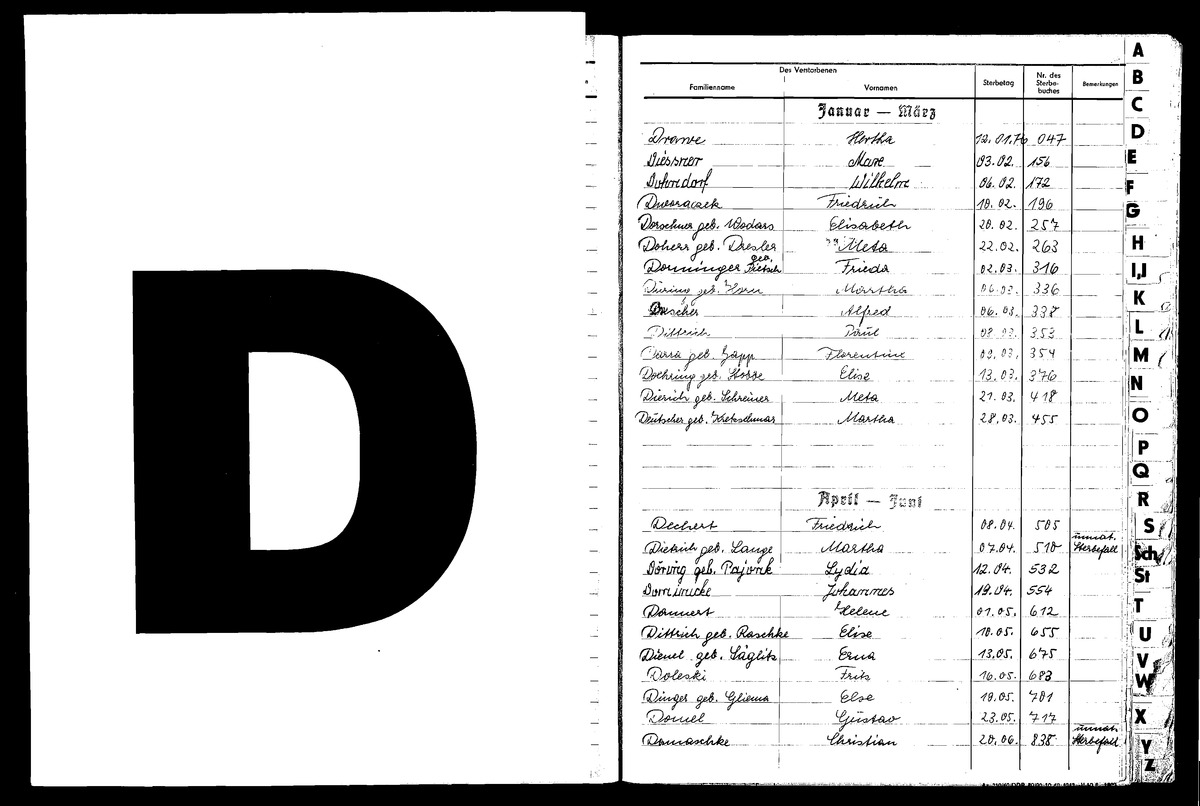 D
Des Verstorbenen
Familienname Vornamen Sterbetag Nr. des Sterbe-buches Bemerkungen
Januar — März
Drawe Hertha 12.01.76 047
Diessner Max 03.02. 156
Dohrndorf Wilhelm 06.02. 172
Dworaczek Friedrich 10.02. 196
Dorschner geb. Wodars Elisabeth 20.02. 257
Doherr geb. Dresler Meta 22.02. 263
Dominger geb. Frieda 02.03. 316
Düring geb. Horn Martha 06.03. 336
Drescher Alfred 06.03. 338
Dittrich Paul 08.03. 353
geb. Florentine 09.03. 354
Doehring geb. Elise 13.03. 376
Dierich geb. Schreiner Meta 21.03. 418
Deutscher geb. Kretzschmar Martha 28.03. 455
April — Juni
Dechert Friedrich 08.04. 505
Dietrich geb. Lange Martha 07.04. 510 Sterbefall
Döring geb. Pajonk Lydia 12.04. 532
Johannes 19.04. 554
Donnert Helene 01.05. 612
Dittrich geb. Raschke Elise 10.05. 655
Dienel geb. Säglitz Erna 13.05. 675
Doleski Fritz 16.05. 683
Dinger geb. Gliema Else 19.05. 701
Domel Gustav 23.05. 717
Domaschke Christian 20.06. 838 Sterbefall
A
B
C
D
E
F
G
H
I,J
K
L
M
N
O
P
Q
R
S
Sch
St
T
U
V
W
X
Y
Z